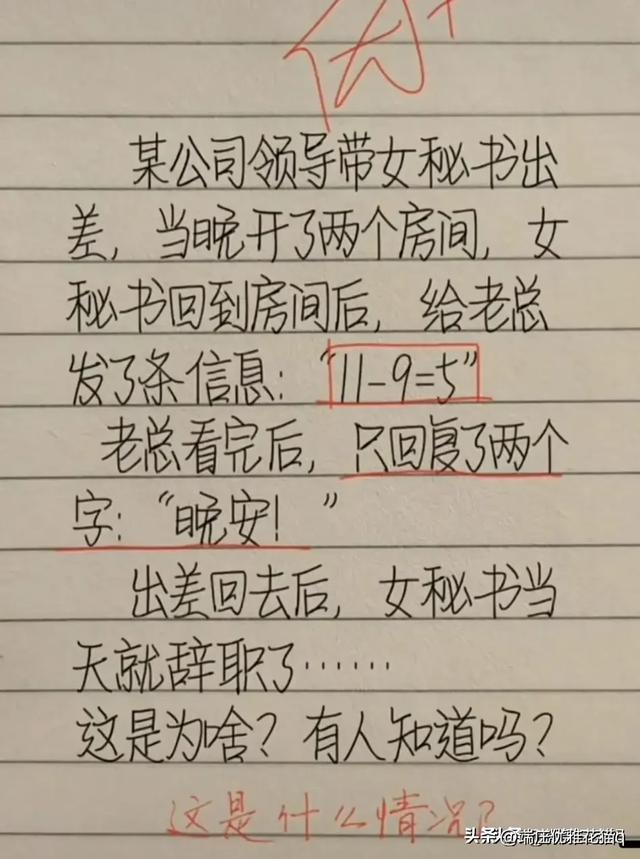 优+
某公司领导带女秘书出
差，当晚开了两个房间，女
秘书回到房间后，给老总
发了条信息：“11-9=5”
老总看完后，只回复了两个
字：“晚安！”
出差回去后，女秘书当
天就辞职了……
这是为啥？有人知道吗？
这是什么情况？
头条 @端庄优雅花猫q